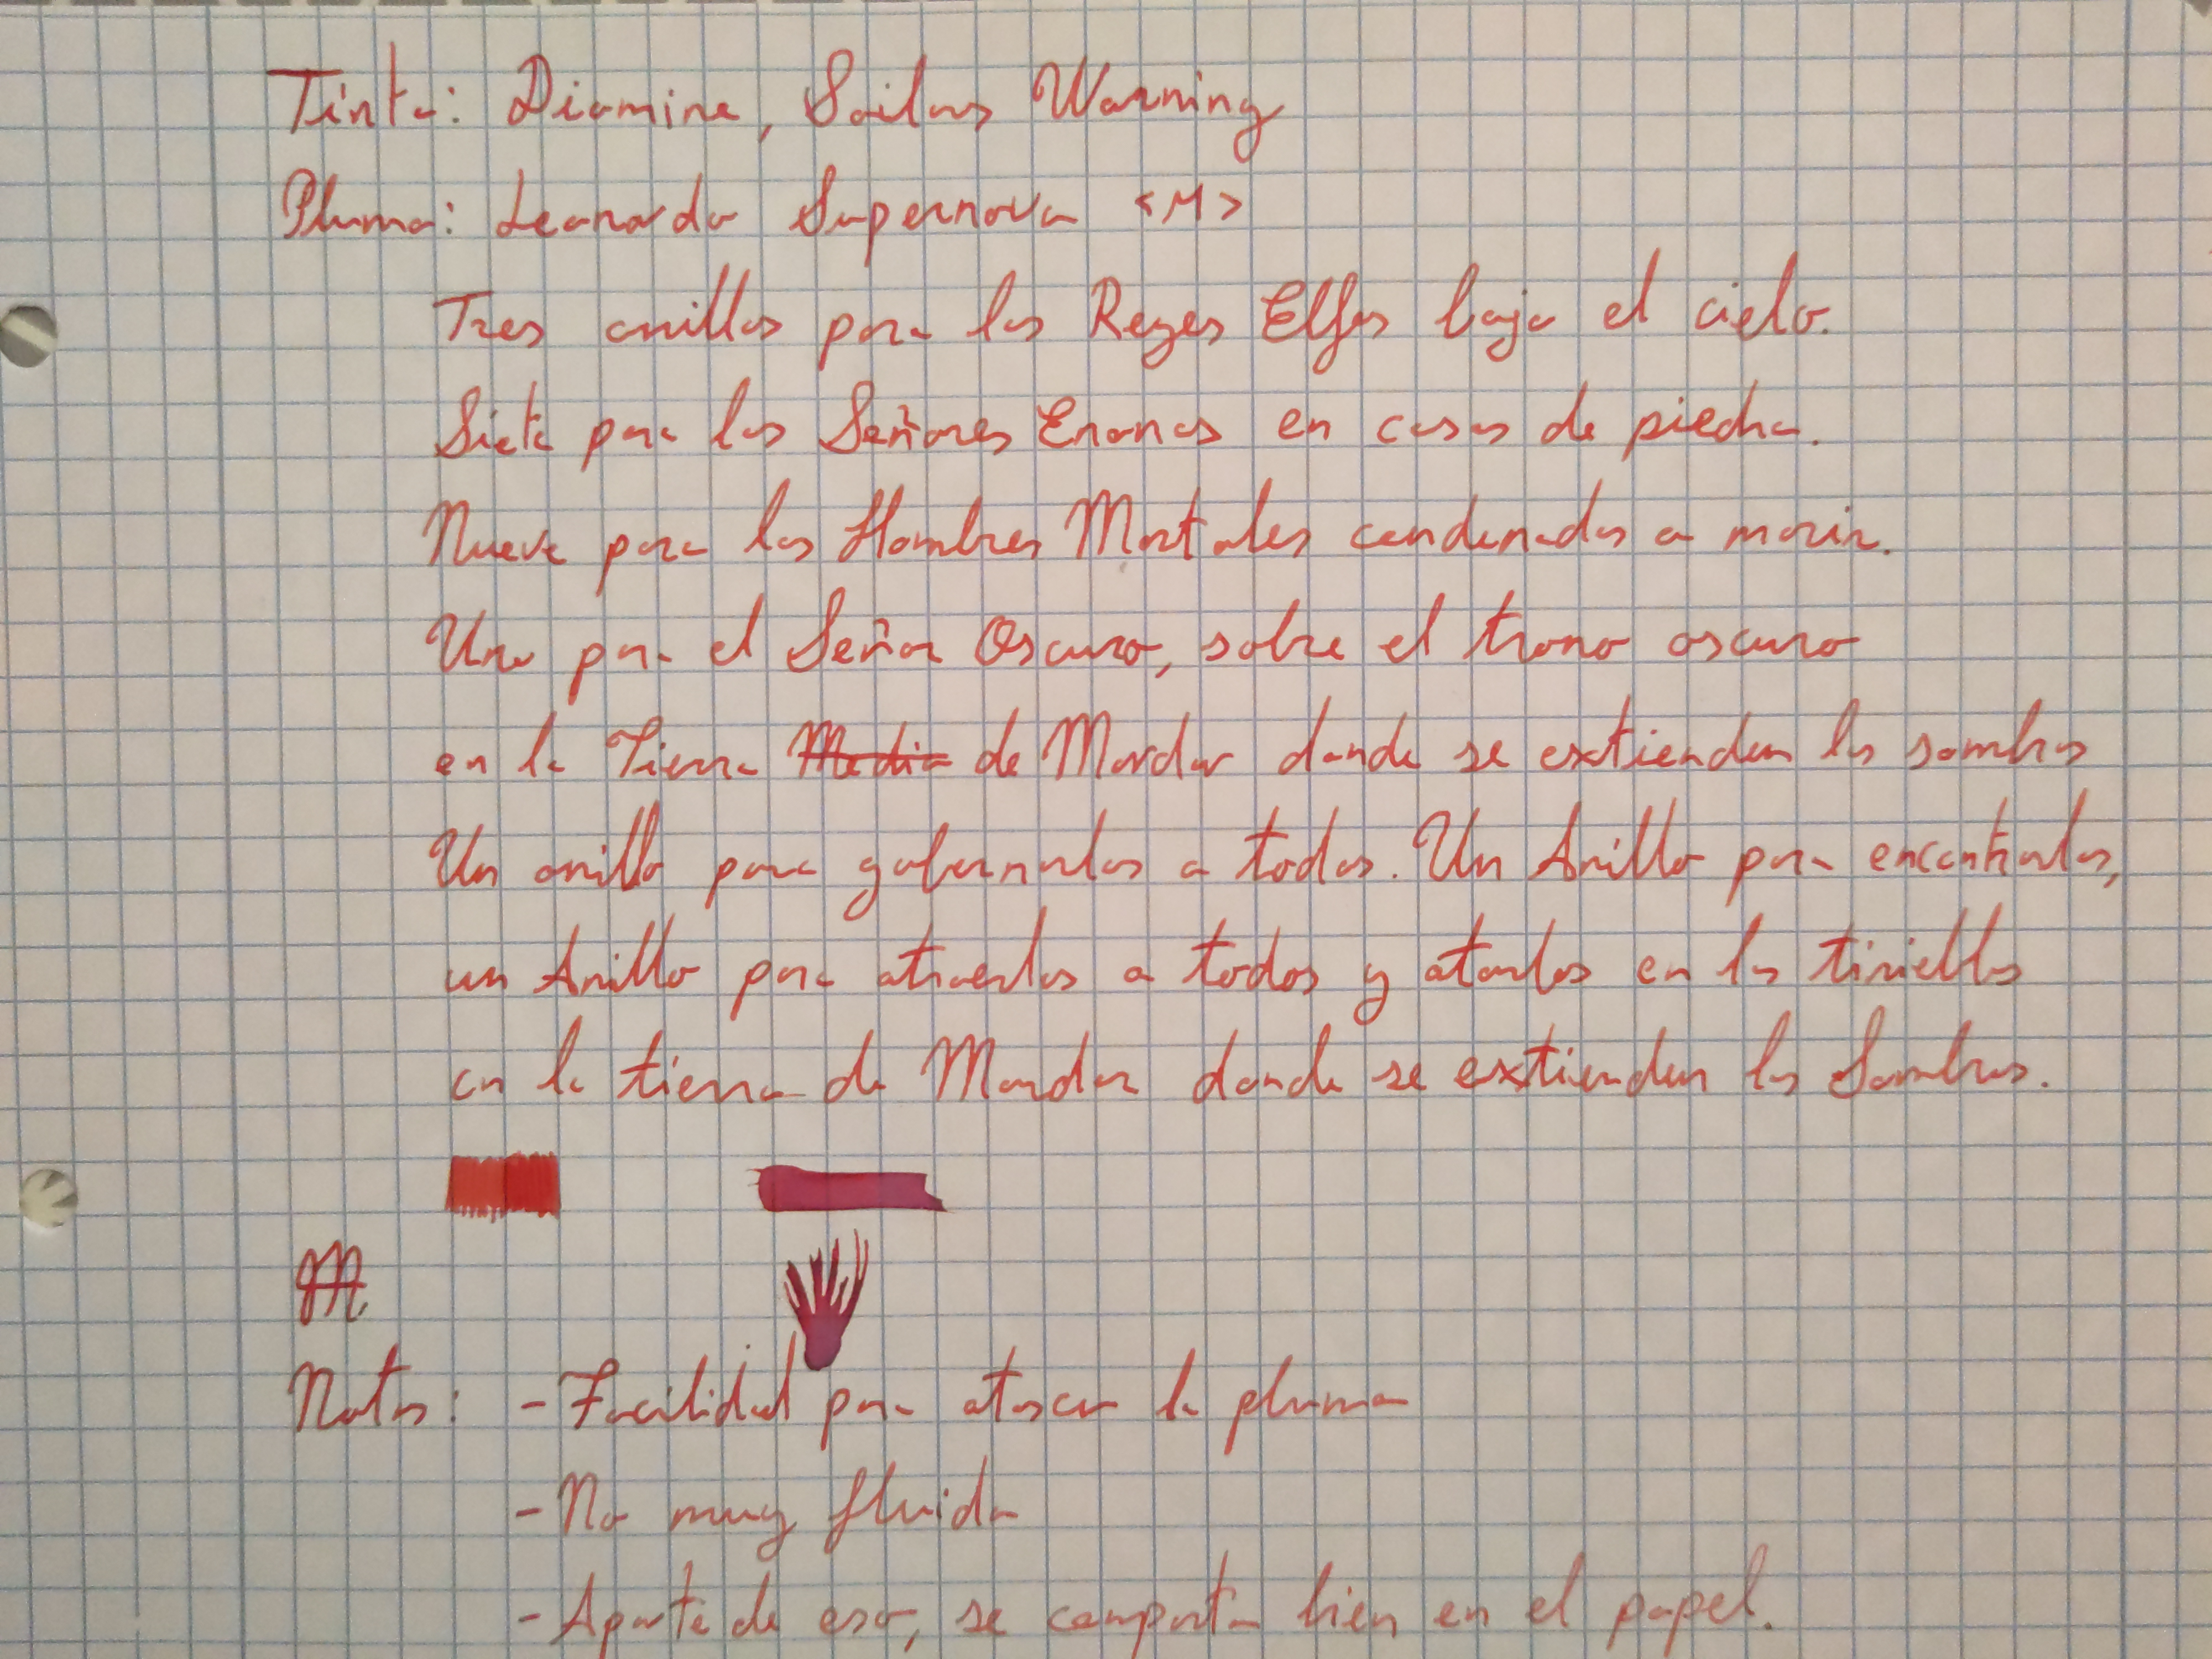 Tinta: Diamine, Sailors Warning
Pluma: Leonardo Supernova <M>
Tres anillos para los Reyes Elfos bajo el cielo.
Siete para los Señores Enanos en casas de piedra.
Nueve para los Hombres Mortales condenados a morir.
Uno para el Señor Oscuro, sobre el trono oscuro
en la Tierra Media de Mordor donde se extienden las sombras
Un anillo para gobernarlos a todos. Un Anillo para encontrarlos,
un Anillo para atraerlos a todos y atarlos en las tinieblas
en la tierra de Mordor donde se extienden las Sombras.
M
Notas: - Facilidad para atascar la pluma
- No muy fluida
- Aparte de eso, se comporta bien en el papel.